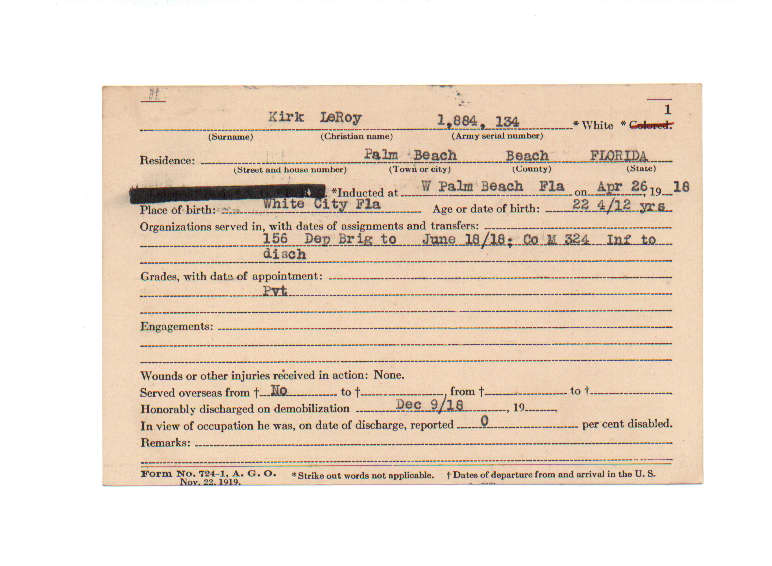 1
Kirk LeRoy 1,884, 134 * White * Colored.
(Surname) (Christian name) (Army serial number)
Residence: Palm Beach Beach FLORIDA
(Street and house number) (Town or city) (County) (State)
*Inducted at W Palm Beach Fla on Apr 26, 19 18
Place of birth: White City Fla Age or date of birth: 22 4/12 yrs
Organizations served in, with dates of assignments and transfers:
156 Dep Brig to June 18/18; Co M 324 Inf to
disch
Grades, with date of appointment:
Pvt
Engagements:
Wounds or other injuries received in action: None.
Served overseas from † No to † from † to †
Honorably discharged on demobilization Dec 9/18, 19
In view of occupation he was, on date of discharge, reported 0 per cent disabled.
Remarks:
Form No. 724-1, A. G. O. *Strike out words not applicable. † Dates of departure from and arrival in the U. S.
Nov. 22, 1919.